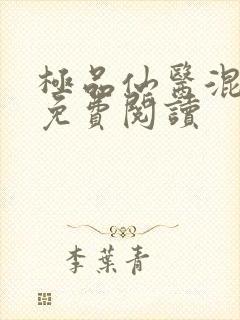 極品仙醫混
免費閱讀
李葉青